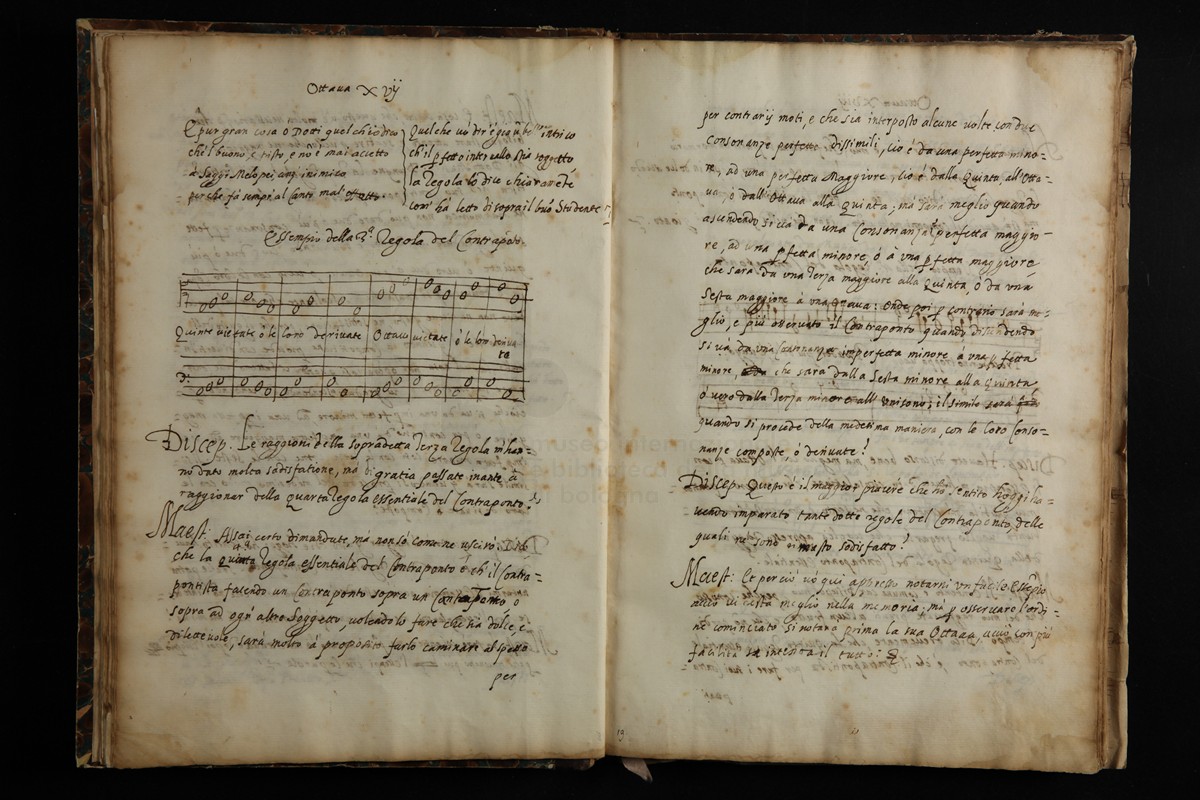 Ottava XVij
E pur gran cosa o Dotti quel chiodra
che'l buono, e tristo, e nō è mai accetto
a Saggi Melopei, anz. inimica
perche fà sempr' al Canto mal' effetto.
Quel che vò dir' è già
intrico
ch'il pfetto interuallo sia sogetto
la Regola lo dice chiaramēte
com' ha letto di sopra il buō Studente
Essempio della 3.ª Regola del Contraponto
Quinte vietate ò le loro deriuate Ottaue vietate ò le loro deriua
te
Discep. Le raggioni della sopradetta terza Regola m'han=
no dato molta sadisfatione, mà di gratia passate inante à
raggionar della quarta Regola essentiale del Contraponto?
Maest: Assai certo dimandate, ma non sò come ne uscirò. Dico
che la quarta Regola essentiale del Contraponto è ch'il Contra=
pontista facendo un Contraponto sopra un Contraponto o
sopra ad ogn' altro Soggetto, uolendolo fare che sia dolce, è
diletteuole, sarà molto à proposito farlo caminare alspesso
per
per contrarij moti, e che sia interposto alcune uolte con due
consonanze perfette dissimili, cio è da una perfetta mino=
re, ad una perfetta Maggiore, cio è dalla Quinta, all' Otta=
ua, ò dall' Ottaua alla Quinta; mà sarà meglio quando
ascendendo si và da una Consonanza imperfetta maggio=
re, ad una pfetta minore, ò à una pfetta maggiore
che sarà da una Terza maggiore alla Quinta, ò da una
Sesta maggiore à una Ottaua: Onde poi p contrario sarà me=
glio, e più osseruato il Contraponto quando discendendo
si uà da una Consonanza imperfetta minore à una pfetta
minore, che sarà dalla Sesta minore alla Quinta
ò uero dalla Terza minore all' Unisono; il simile sarà
quando si procede della medesma maniera, con le loro Conso=
nanze composte, ò deriuate!
Discep. Questo è il maggior piacere che hò sentito hoggi ha=
uendo imparato tante dotte regole del Contraponto, delle
quali ne sono rimasto sodisfatto!
Maest: Et perciò uò qui appresso notarui un facile Essempio
acciò ui resta meglio nella memoria; mà p osseruare l'ordi=
ne cominciato si notarà prima la sua Ottaua, acciò con più
facilità si intenda il tutto:
19